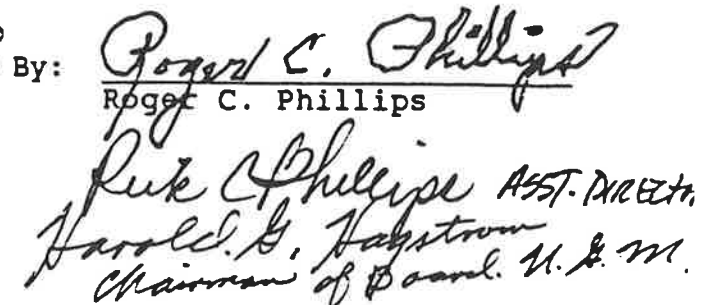 By: Roger C. Phillips
Roger C. Phillips
Rick C Phillips ASST. DIRECTR.
Harold. G. Hagstrom
Chairman of Board. U. G. M.